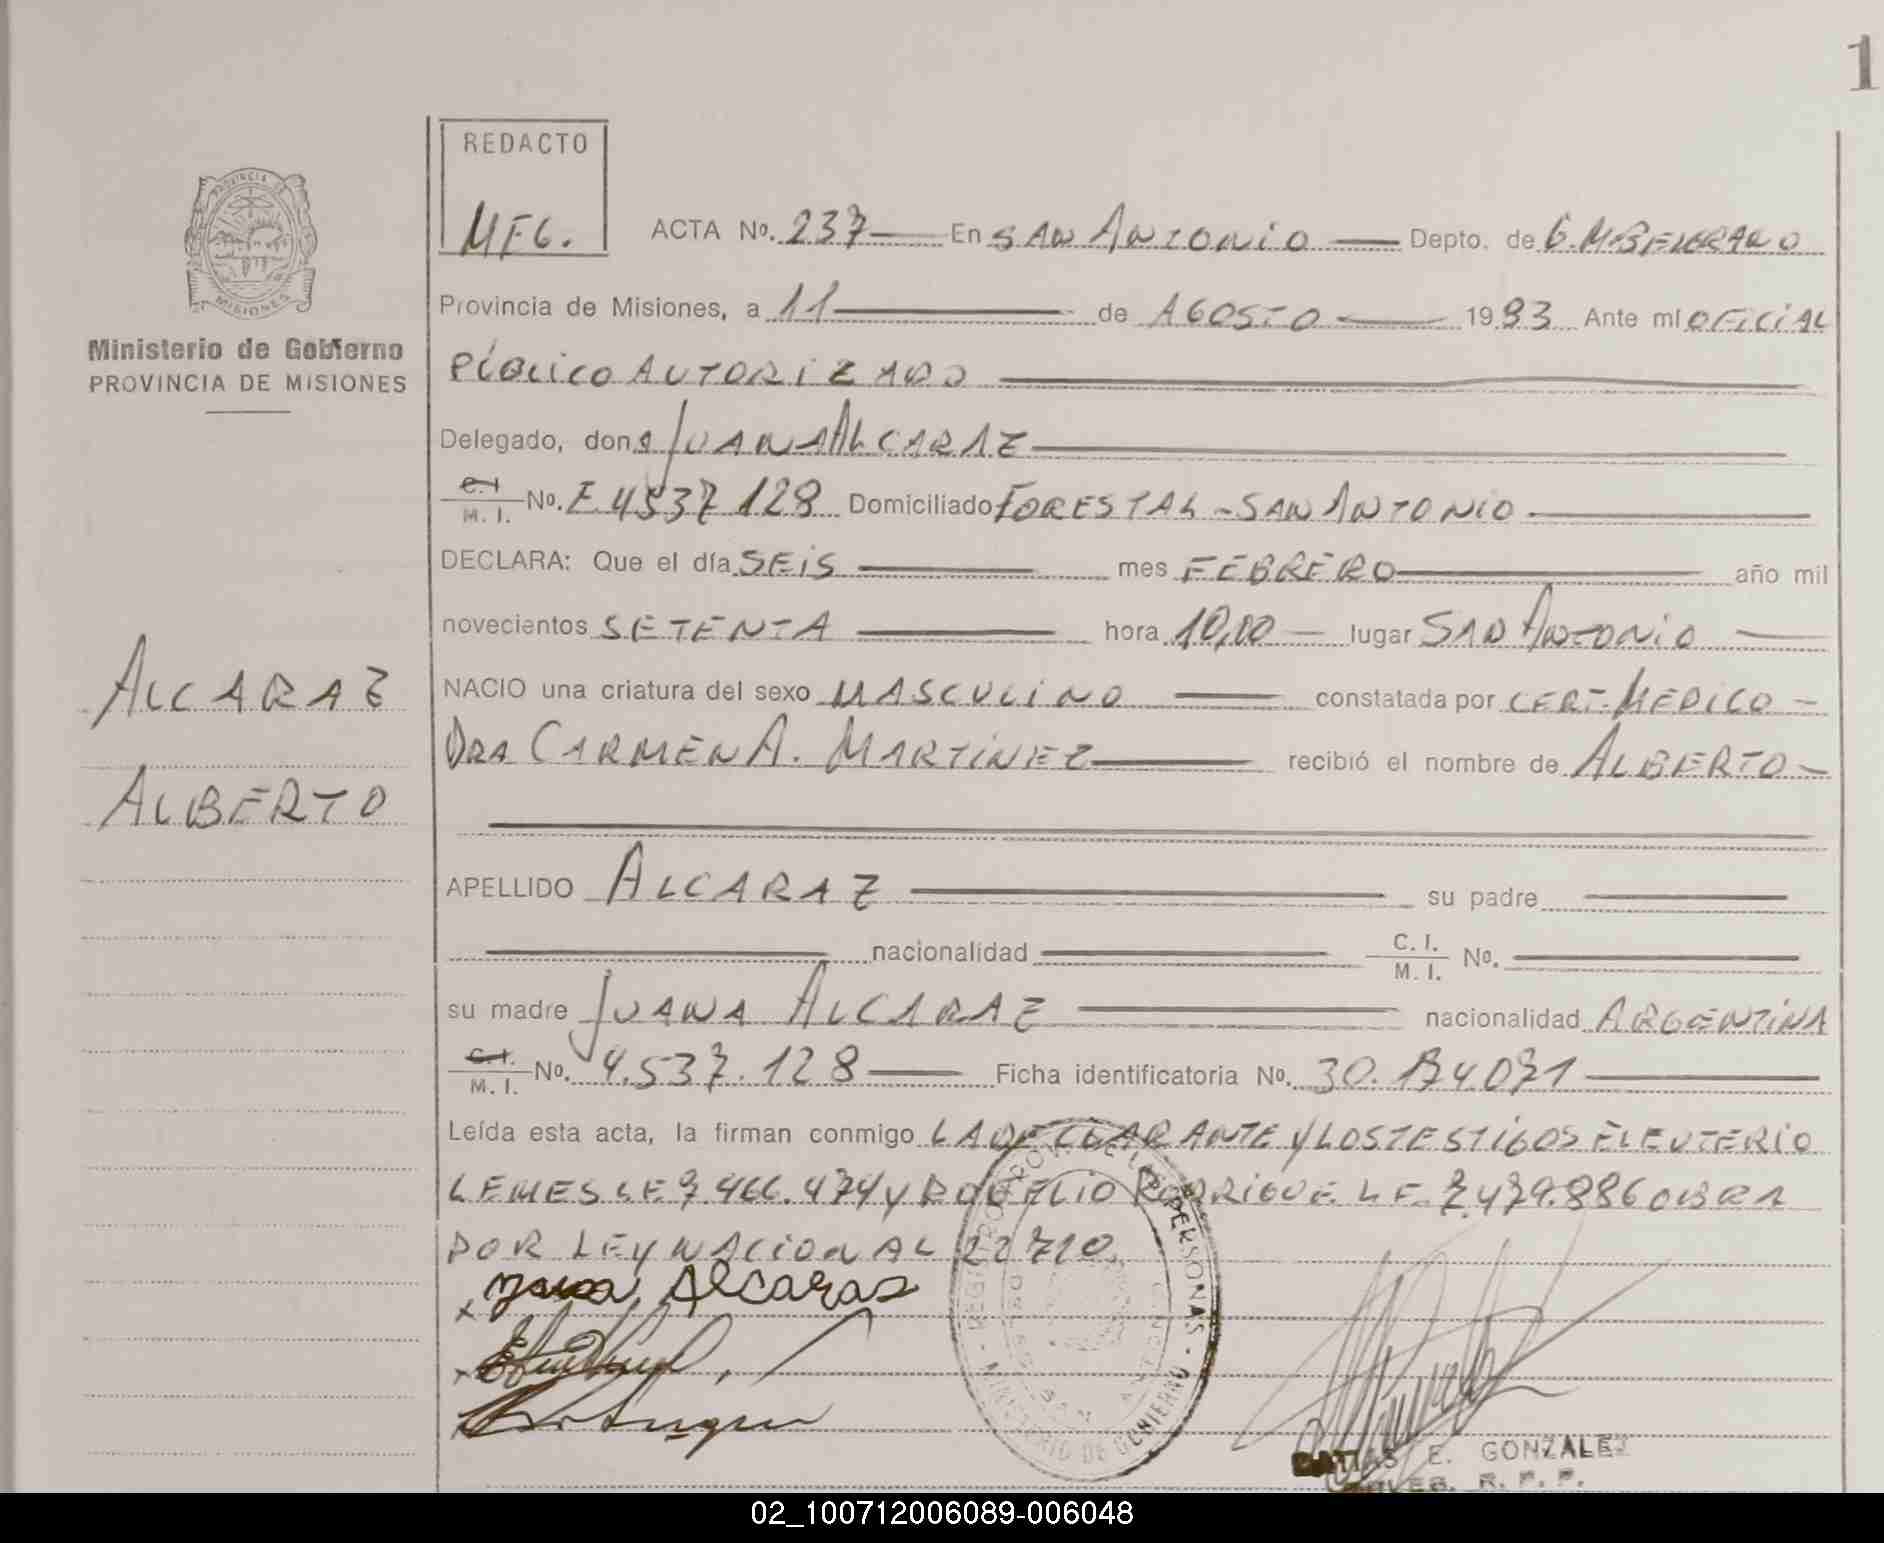 1
REDACTO
MEG.
PROVINCIA DE
MISIONES
Ministerio de Gobierno
PROVINCIA DE MISIONES
ALCARAZ
ALBERTO
ACTA No. 237 En SAN ANTONIO Depto. de G. M. BELGRANO
Provincia de Misiones, a 11 de AGOSTO 1983 Ante mí OFICIAL
PÚBLICO AUTORIZADO
Delegado, dona JUANA ALCARAZ
C. I. M. I. No. F. 4537128 Domiciliado FORESTAL - SAN ANTONIO
DECLARA: Que el día SEIS mes FEBRERO año mil
novecientos SETENTA hora 10,00 lugar SAN ANTONIO
NACIO una criatura del sexo MASCULINO constatada por CERT. MEDICO -
DRA CARMEN A. MARTÍNEZ recibió el nombre de ALBERTO -
APELLIDO ALCARAZ su padre
nacionalidad C. I. M. I. No.
su madre JUANA ALCARAZ nacionalidad ARGENTINA
C. I. M. I. No. 4.537.128 Ficha identificatoria No. 30.174.071
Leída esta acta, la firman conmigo LA DECLARANTE Y LOS TESTIGOS ELEUTERIO
LEMES LE 7.466.474 Y ROGELIO RODRIGUE. LE. 7.479.886 OBRA
POR LEY NACIONAL 22710
x Juana Alcaraz
x
REGISTRO PROV. DE LAS PERSONAS - MINISTERIO DE GOBIERNO -
SAN ANTONIO
MATIAS E. GONZALEZ
R. P. P.
02_100712006089-006048